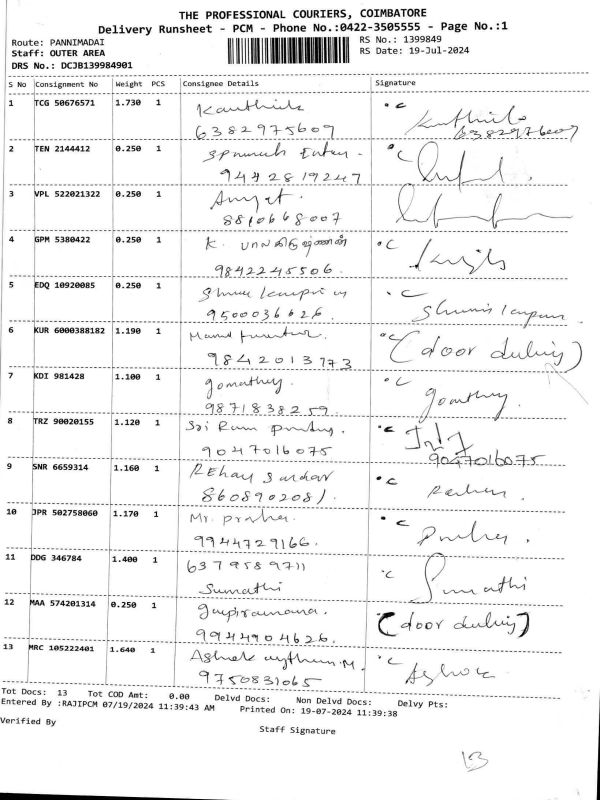 THE PROFESSIONAL COURIERS, COIMBATORE
Delivery Runsheet - PCM - Phone No.:0422-3505555 - Page No.:1
Route: PANNIMADAI
RS No.: 1399849
Staff: OUTER AREA
RS Date: 19-Jul-2024
DRS No.: DCJB139984901
S No Consignment No Weight PCS Consignee Details Signature
1 TCG 50676571 1.730 1 Kauthik °C Kauthik
6382975609 6382976009
2 TEN 2144412 0.250 1 °C
9442819247
3 VPL 522021322 0.250 1
8810668007
4 GPM 5380422 0.250 1 K. பாலகிருஷ்ணன் °C
9842245506.
5 EDQ 10920085 0.250 1 °C
9500036626.
6 KUR 6000388182 1.190 1 °C (door
9842013773
7 KDI 981428 1.100 1 gomathy. °C gomthy.
9871838259.
8 TRZ 90020155 1.120 1 Sri Ram °C
9047016075 9047016075
9 SNR 6659314 1.160 1 °C
8608902081.
10 JPR 502758060 1.170 1 Mr. °C
9944729166.
11 DDG 346784 1.400 1 6379589711 °C Sumathi
Sumathi
12 MAA 574201314 0.250 1 (door
9944904626.
13 MRC 105222401 1.640 1 Ashok °C Ashok
9750831065
Tot Docs: 13 Tot COD Amt: 0.00 Delvd Docs: Non Delvd Docs: Delvy Pts:
Entered By :RAJIPCM 07/19/2024 11:39:43 AM Printed On: 19-07-2024 11:39:38
Verified By
Staff Signature
13